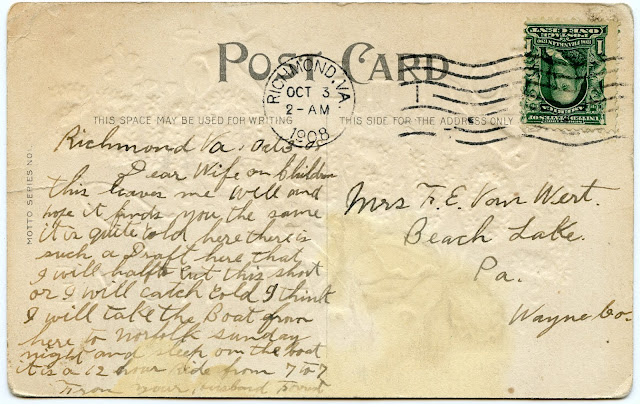 POST CARD
RICHMOND, VA.
OCT 3
2-AM
1908
ONE CENT
1
1
THIS SPACE MAY BE USED FOR WRITING
THIS SIDE FOR THE ADDRESS ONLY
MOTTO SERIES NO.
Richmond Va. Octo
Dear Wife on Children
this leaves me Well and
hope it finds you the same
it is quite cold here there is
such a Draft here that
I will hafto cut this short
or I will catch cold I think
I will take the Boat from
here to Norfolk sunday
night and sleep on the boat
it is a 12 hour ride from 7 to 7
From your husband
Mrs F. E. Van Wert.
Beach Lake.
Pa.
Wayne Co.